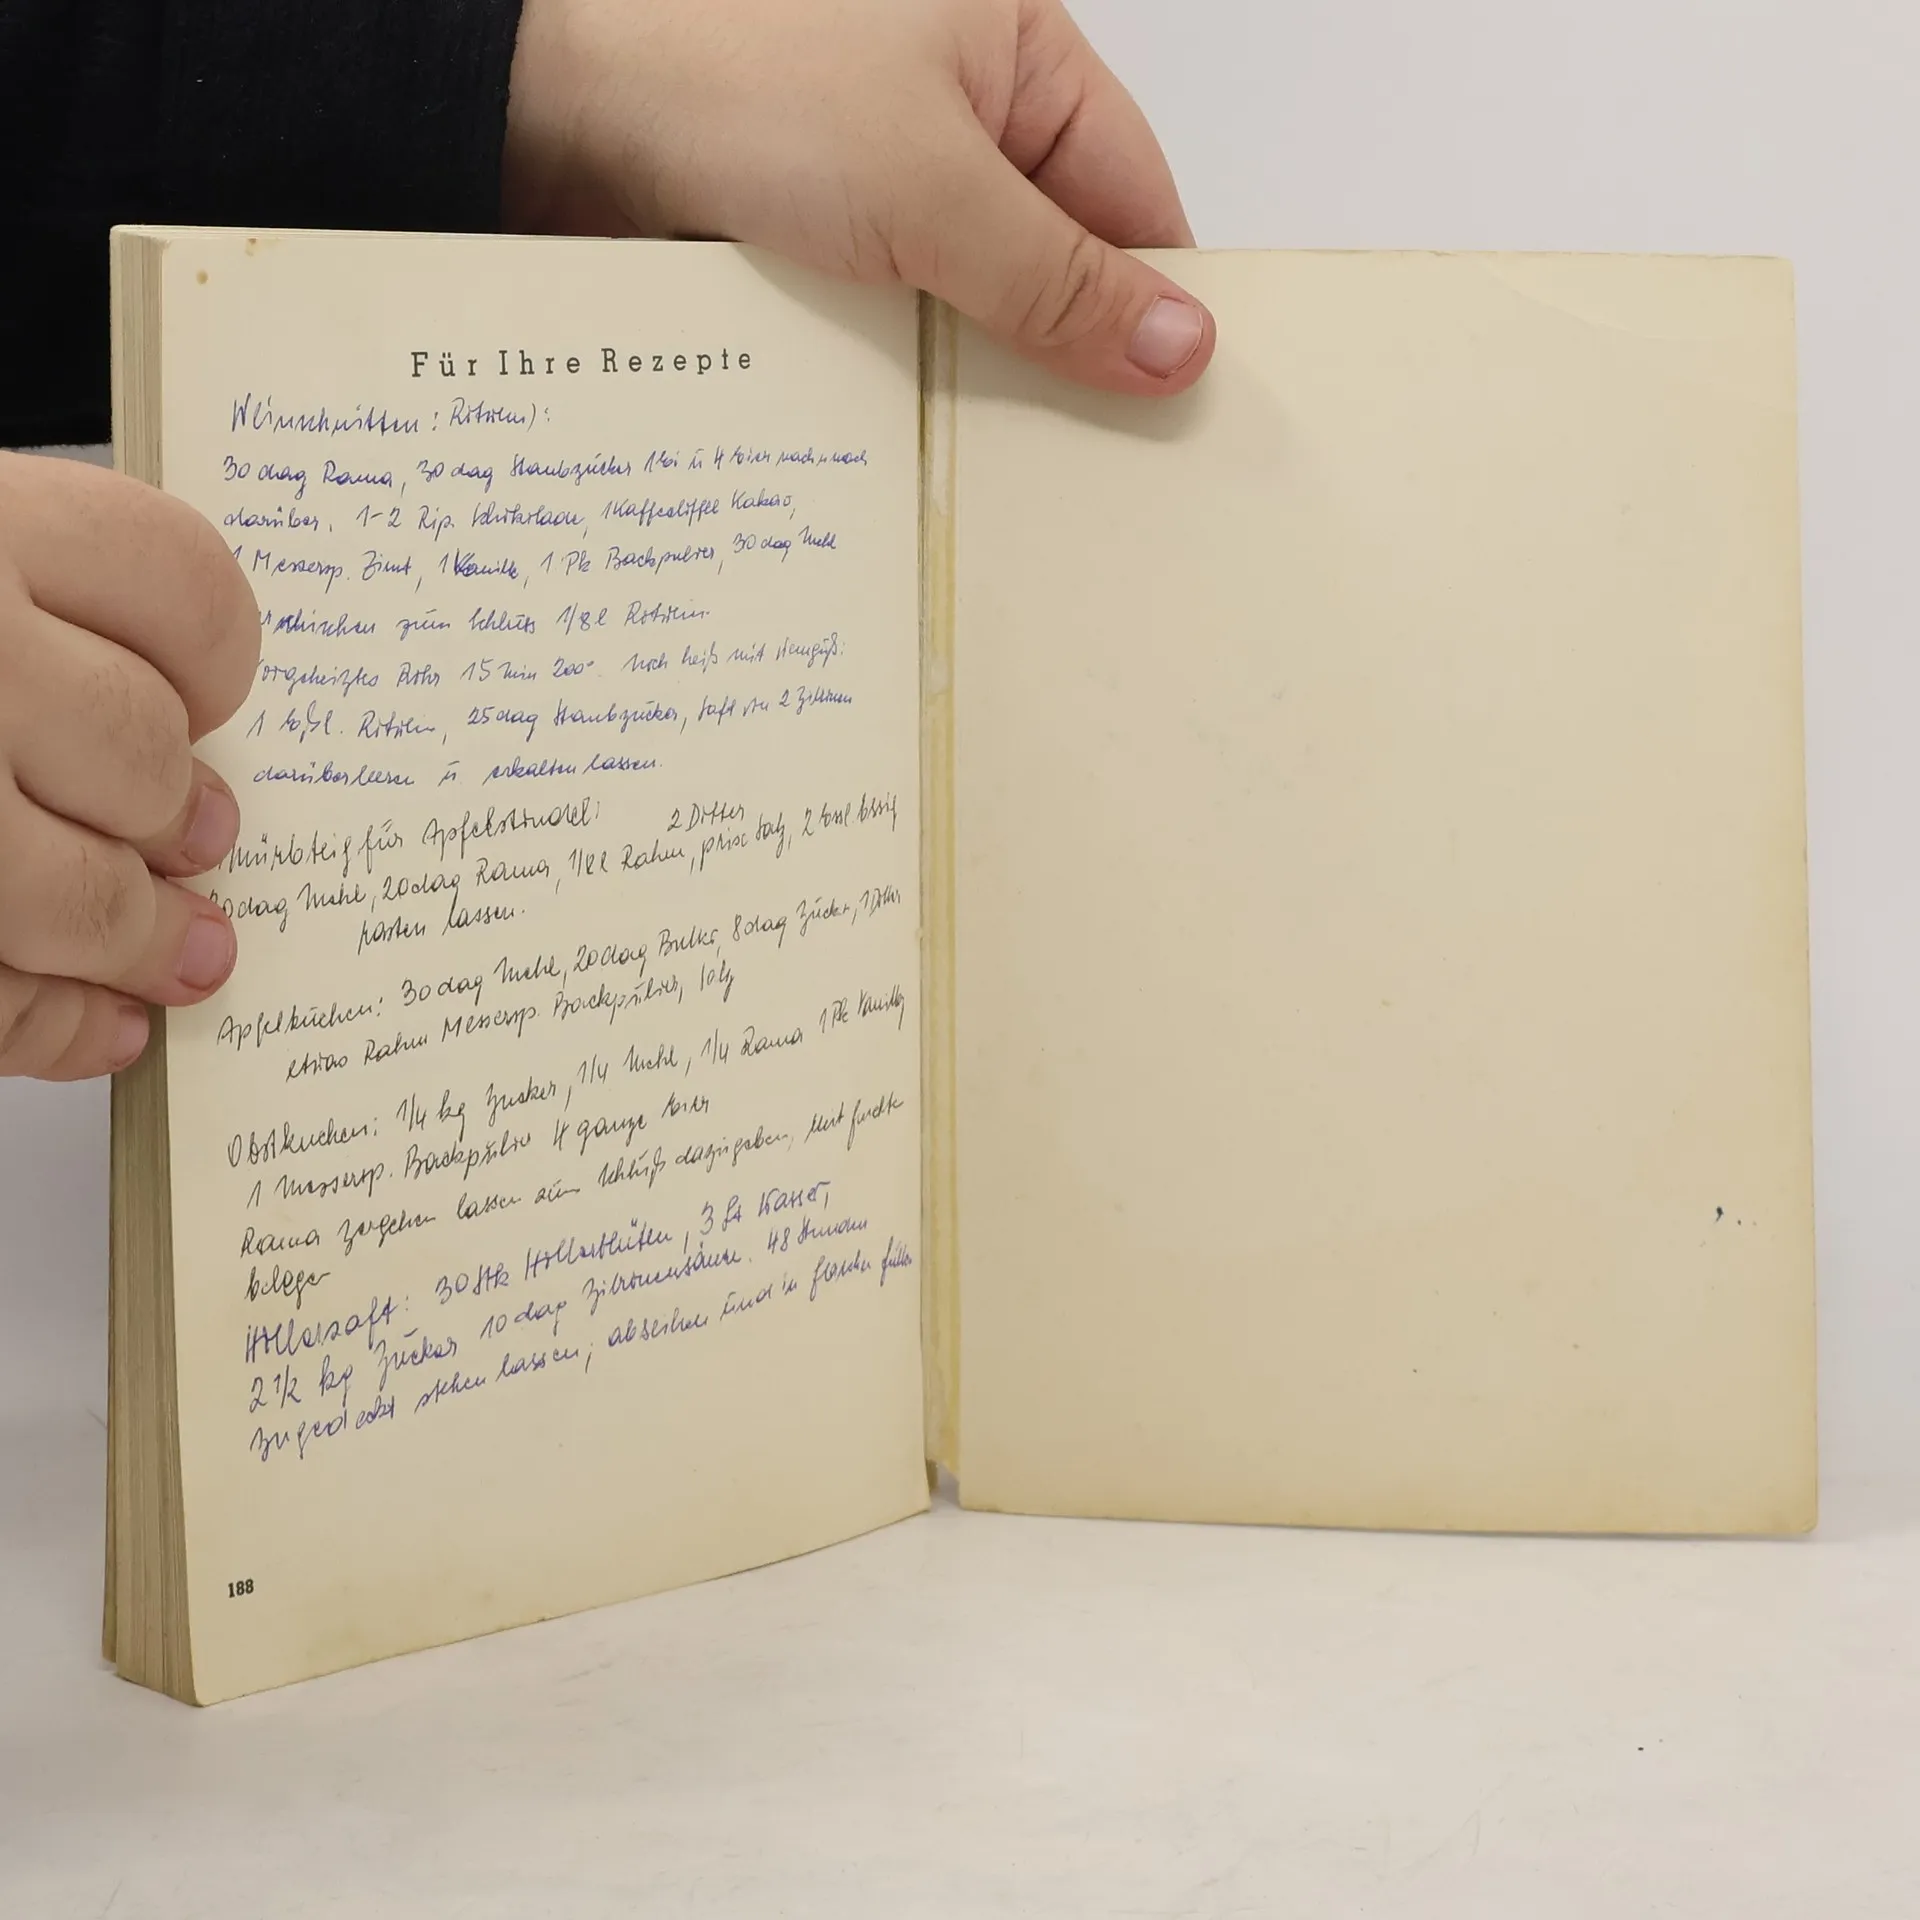 Für Ihre Rezepte
Weinschnitten: Rotwein):
30 dag Rama, 30 dag Staubzucker 1 Ei u 4 Eier nach u nach
darüber, 1-2 Rip. Schokolade, 1 Kaffeelöffel Kakao,
1 Messersp. Zimt, 1 Vanille, 1 Pk Backpulver, 30 dag Mehl
zum Schluss 1/8 l Rotwein.
Vorgeheiztes Rohr 15 min 200° noch heiß mit
1 Eßl. Rotwein, 25 dag Staubzucker, Saft von 2 Zitronen
darüberleeren u. erkalten lassen.
Mürbteig für Apfelstrudel:
2 Dotter
dag Mehl, 20 dag Rama, 1/8 l Rahm, prise Salz, 2 Essl. Essig
rasten lassen.
Apfelkuchen: 30 dag Mehl, 20 dag Butter, 8 dag Zucker, 1 Dotter
etwas Rahm Messersp. Backpulver, Salz
Obstkuchen: 1/4 kg Zucker, 1/4 Mehl, 1/4 Rama 1 Pk Vanille
1 Messersp. Backpulver 4 ganze Eier
Rama zergehen lassen zum Schluß dazugeben, Mit Früchte
belegen
Hollersaft: 30 Stk Hollerblüten, 3 Lt Wasser,
2 1/2 kg Zucker 10 dag Zitronensäure. 48 Stunden
zugedeckt stehen lassen, abseihen und in Flaschen füllen
188